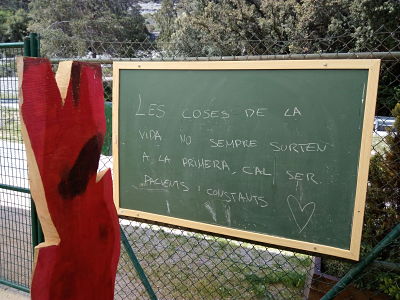 LES COSES DE LA
VIDA NO SEMPRE SURTEN
A LA PRIMERA, CAL SER
PACIENTS I CONSTANTS